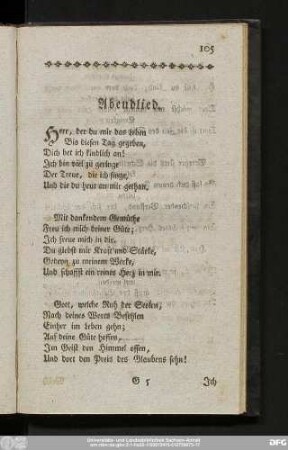 105
Abendlied.
Herr, der du mir das Leben
Bis diesen Tag gegeben,
Dich bet ich kindlich an!
Ich bin viel zu geringe
Der Treue, die ich singe,
Und die du heut an mir gethan.
Mit dankendem Gemüthe
Freu ich mich deiner Güte;
Ich freue mich in dir.
Du giebst mir Kraft und Stärke,
Gedeyn zu meinem Werke,
Und schaffst ein reines Herz in mir.
Gott, welche Ruh der Seelen,
Nach deines Worts Befehlen
Einher im Leben gehn;
Auf deine Güte hoffen,
Im Geist den Himmel offen,
Und dort den Preis des Glaubens sehn!
G 5 Ich
Universitäts- und Landesbibliothek Sachsen-Anhalt
DFG